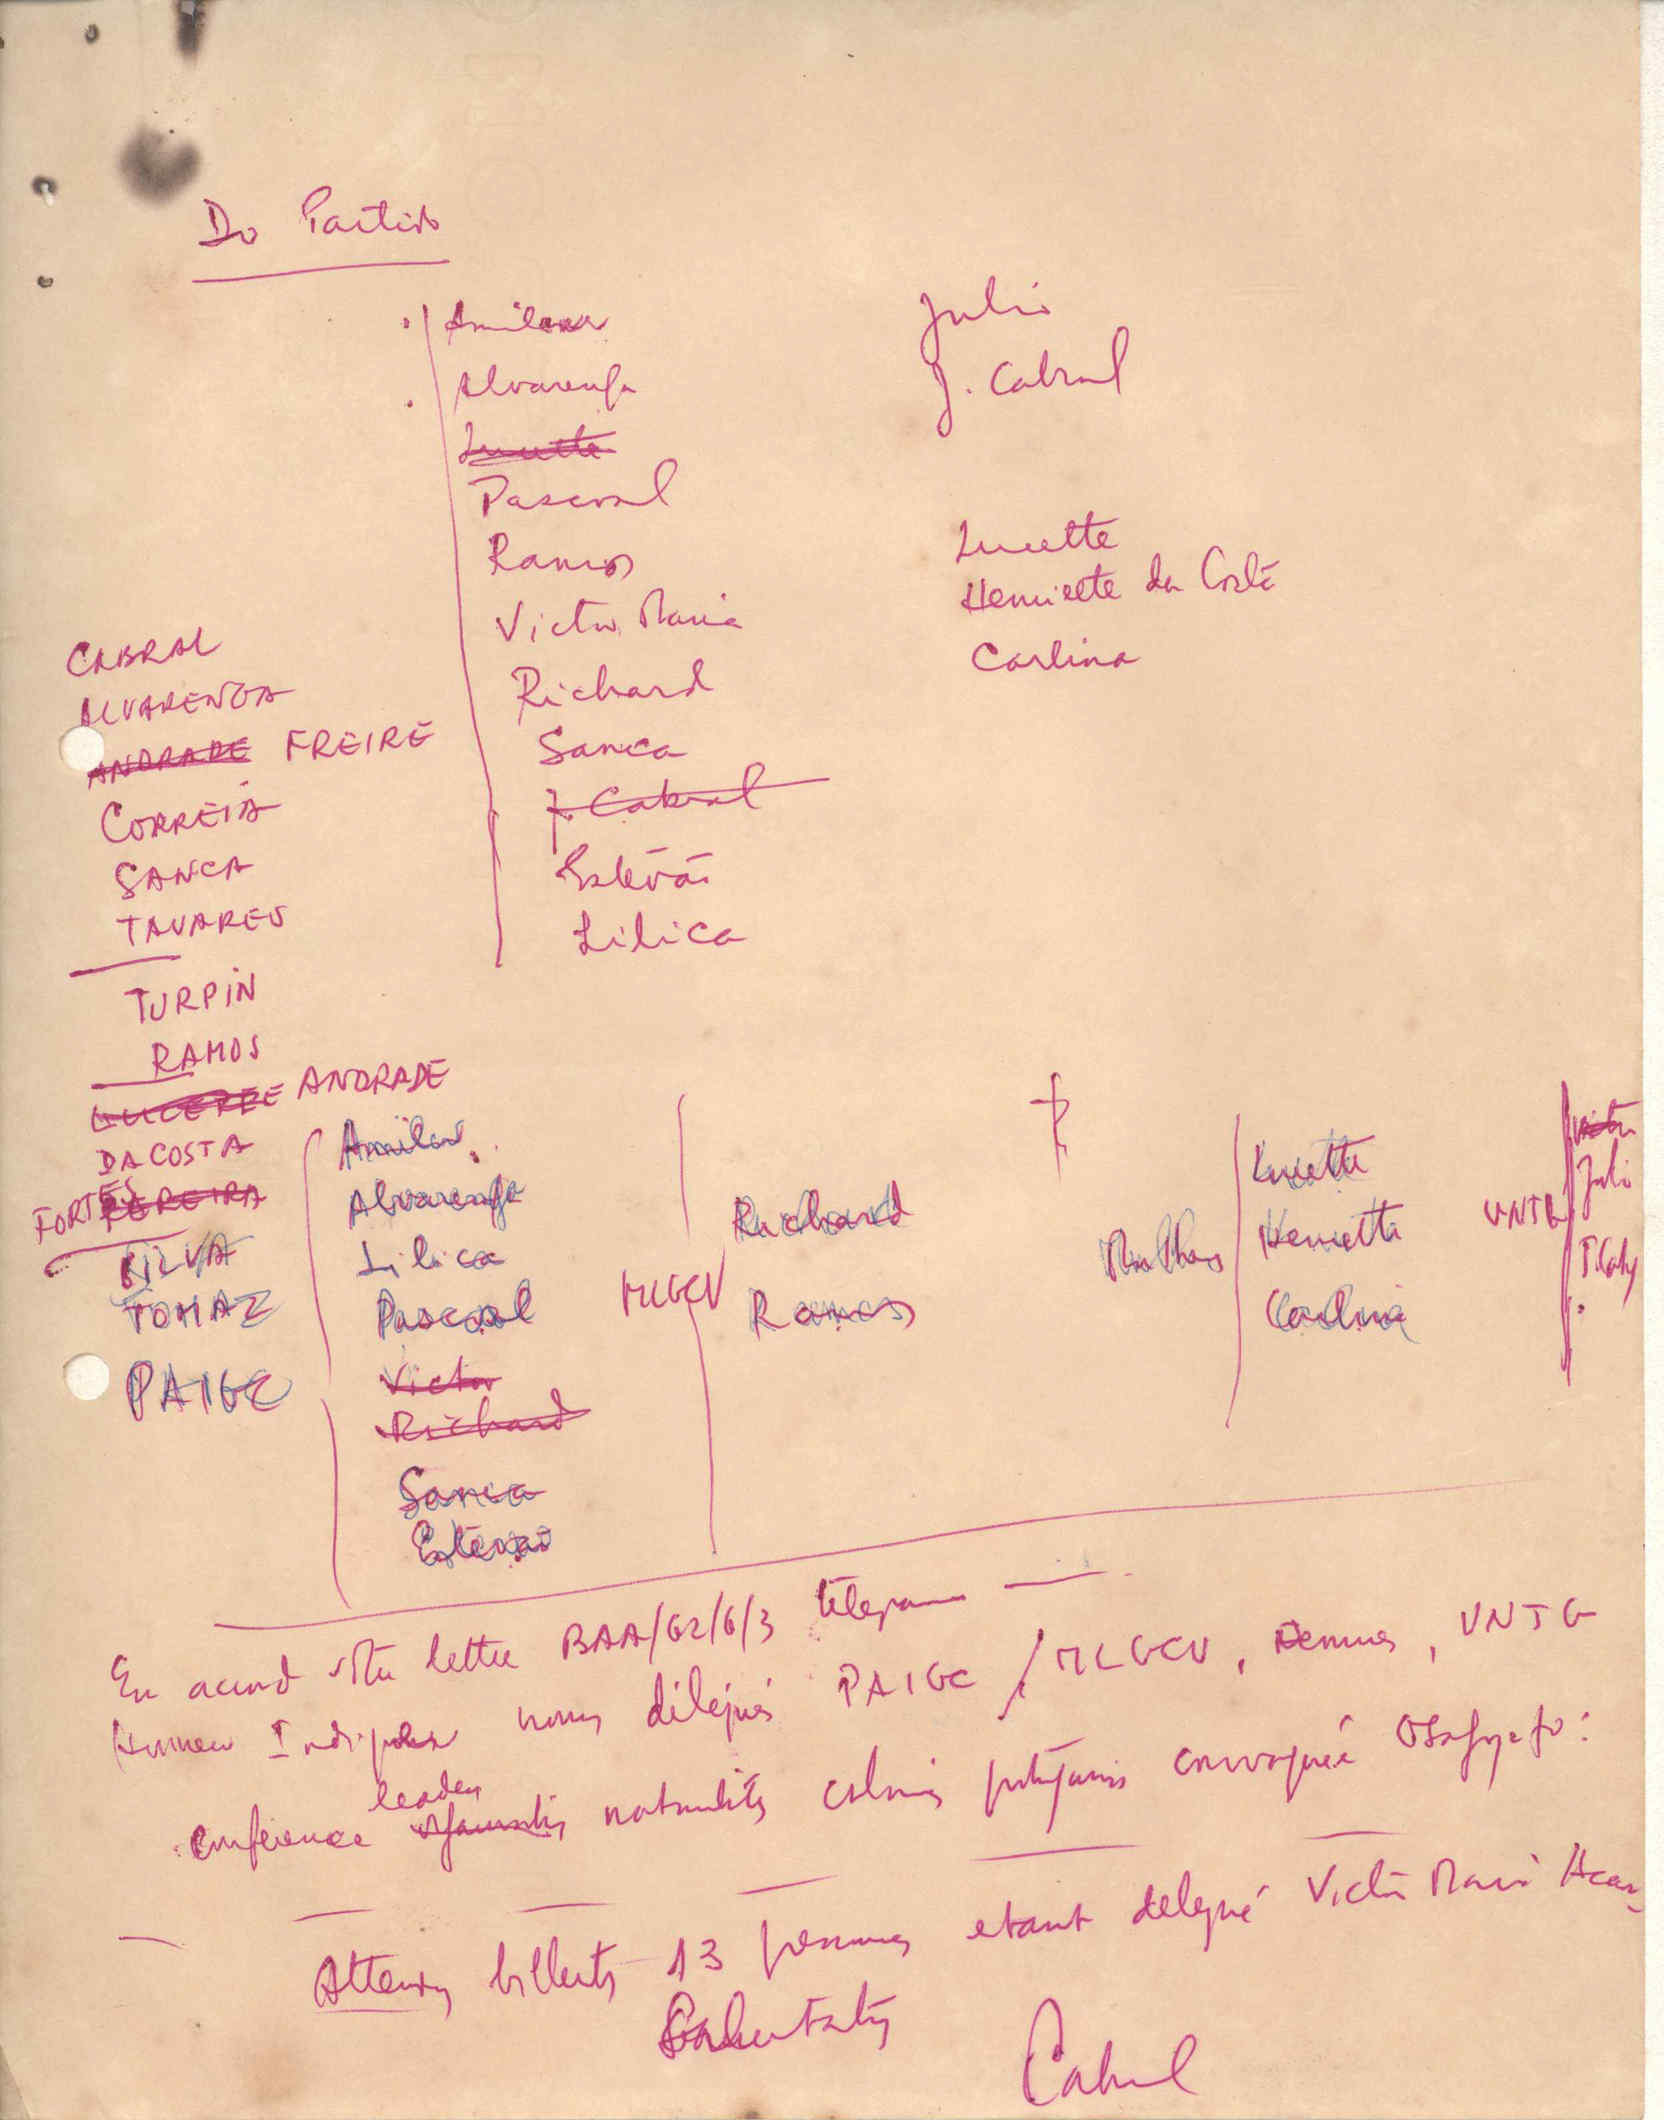 Do Partido
Amilcar
Alvarenga
Lucette
Pascoal
Ramos
Victor Maria
Richard
Sanca
J. Cabral
Estêvão
Lilica
Julio
J. Cabral
Lucette
Henriette da Costa
Carlina
CABRAL
ALVARENGA
ANDRADE FREIRE
CORREIA
SANCA
TAVARES
TURPIN
RAMOS
ANDRADE
DA COSTA
FORTES PEREIRA
SILVA
TOMAZ
PAIGC
Amilcar
Alvarenga
Lilica
Pascoal
Victor
Richard
Sanca
Estevão
MLGCV
Richard
Ramos
Lucette
Henriette
Carlina
UNTG
Victor
Julio
En accord votre lettre BAA/G2/6/3 télégramme
nous délégués PAIGC / MLGCV, Femmes, UNTG
conférence leaders nationalistes colonies portugaises convoquée Osagyefo:
Attendons billets 13 personnes etant delegué Victor Maria Accra
Salutations
Cabral